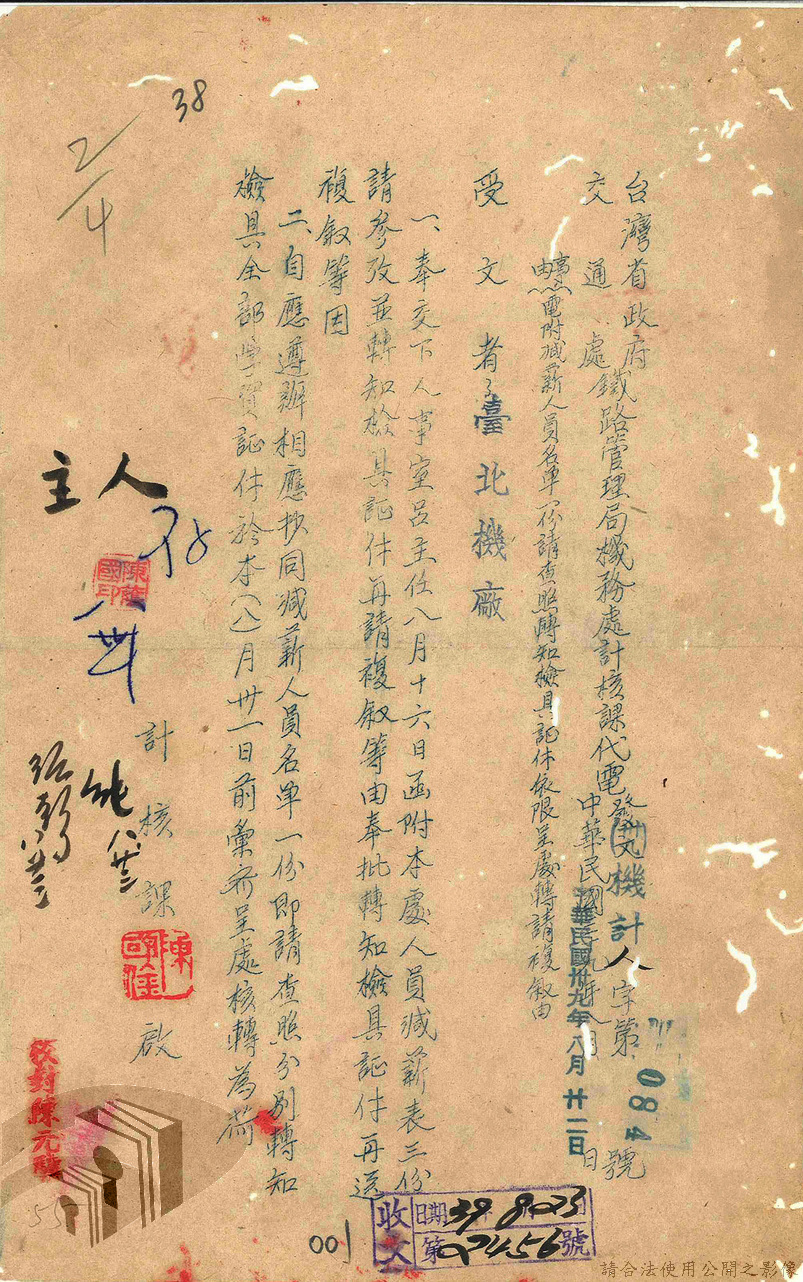 38
2/4
台灣省政府
交通處鐵路管理局機務處計核課代電
發文機計人字第 號
中華民國卅九年八月廿二日
事由:電附減薪人員名單一份請查照轉知檢具証件依限呈處轉請複敘由
受文者:臺北機廠
一、奉交下人事室呂主任八月十六日函附本處人員減薪表三份
請參攷並轉知檢具証件再請複敘等由奉批轉知檢具証件再送
複敘等因
二、自應遵辦相應抄同減薪人員名單一份即請查照分別轉知
檢具全部學資証件於本(八)月卅一日前彙齊呈處核轉為荷
計核課 啟
人
主
校對陳元
001
收文
日期39 8 23
第02456號
請合法使用公開之影像